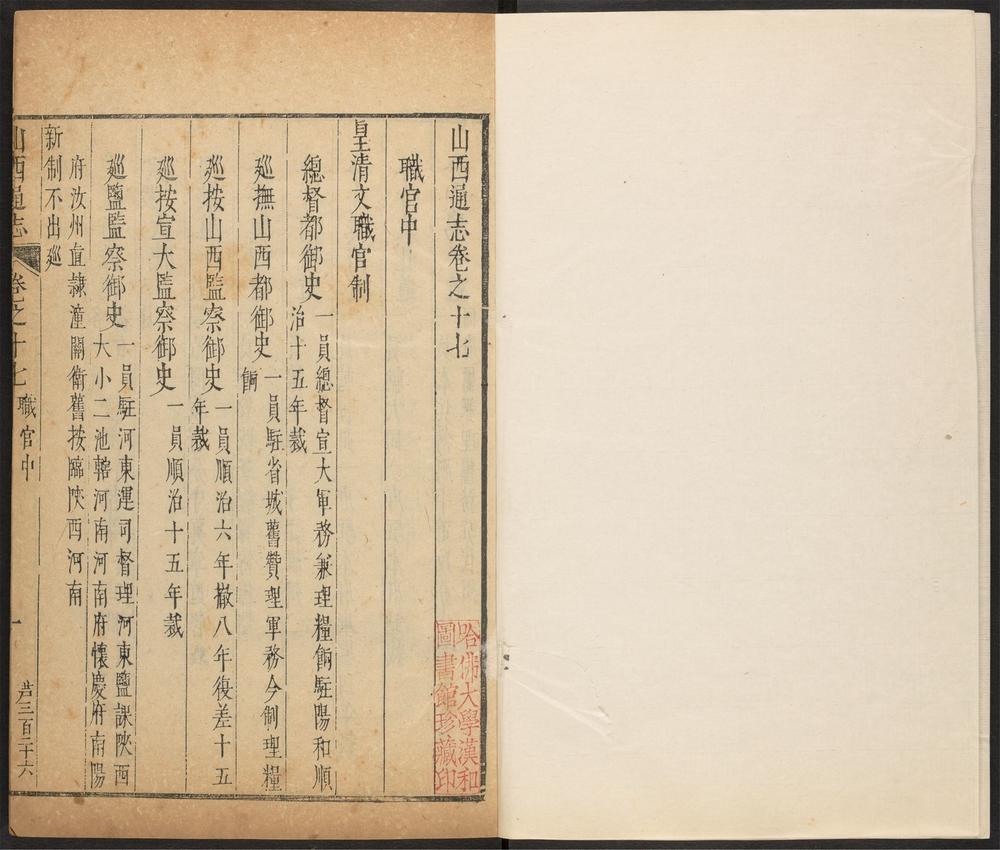 山西通志卷之十七
職官中
皇清文職官制
總督都御史一員總督宣大軍務兼理糧餉駐陽和順
治十五年裁
廵撫山西都御史一員駐省城舊贊理軍務今制理糧
餉
廵按山西監察御史一員順治六年撤八年復差十五
年裁
廵按宣大監察御史一員順治十五年裁
廵鹽監察御史一員駐河東運司督理河東鹽課陝西
大小二池轄河南河南府懷慶府南陽
府汝州直隸潼關衛舊按臨陝西河南
新制不出廵
山西通志
卷之十七
職官中
一
芦三百二十六
哈佛大學漢和
圖書館珍藏印